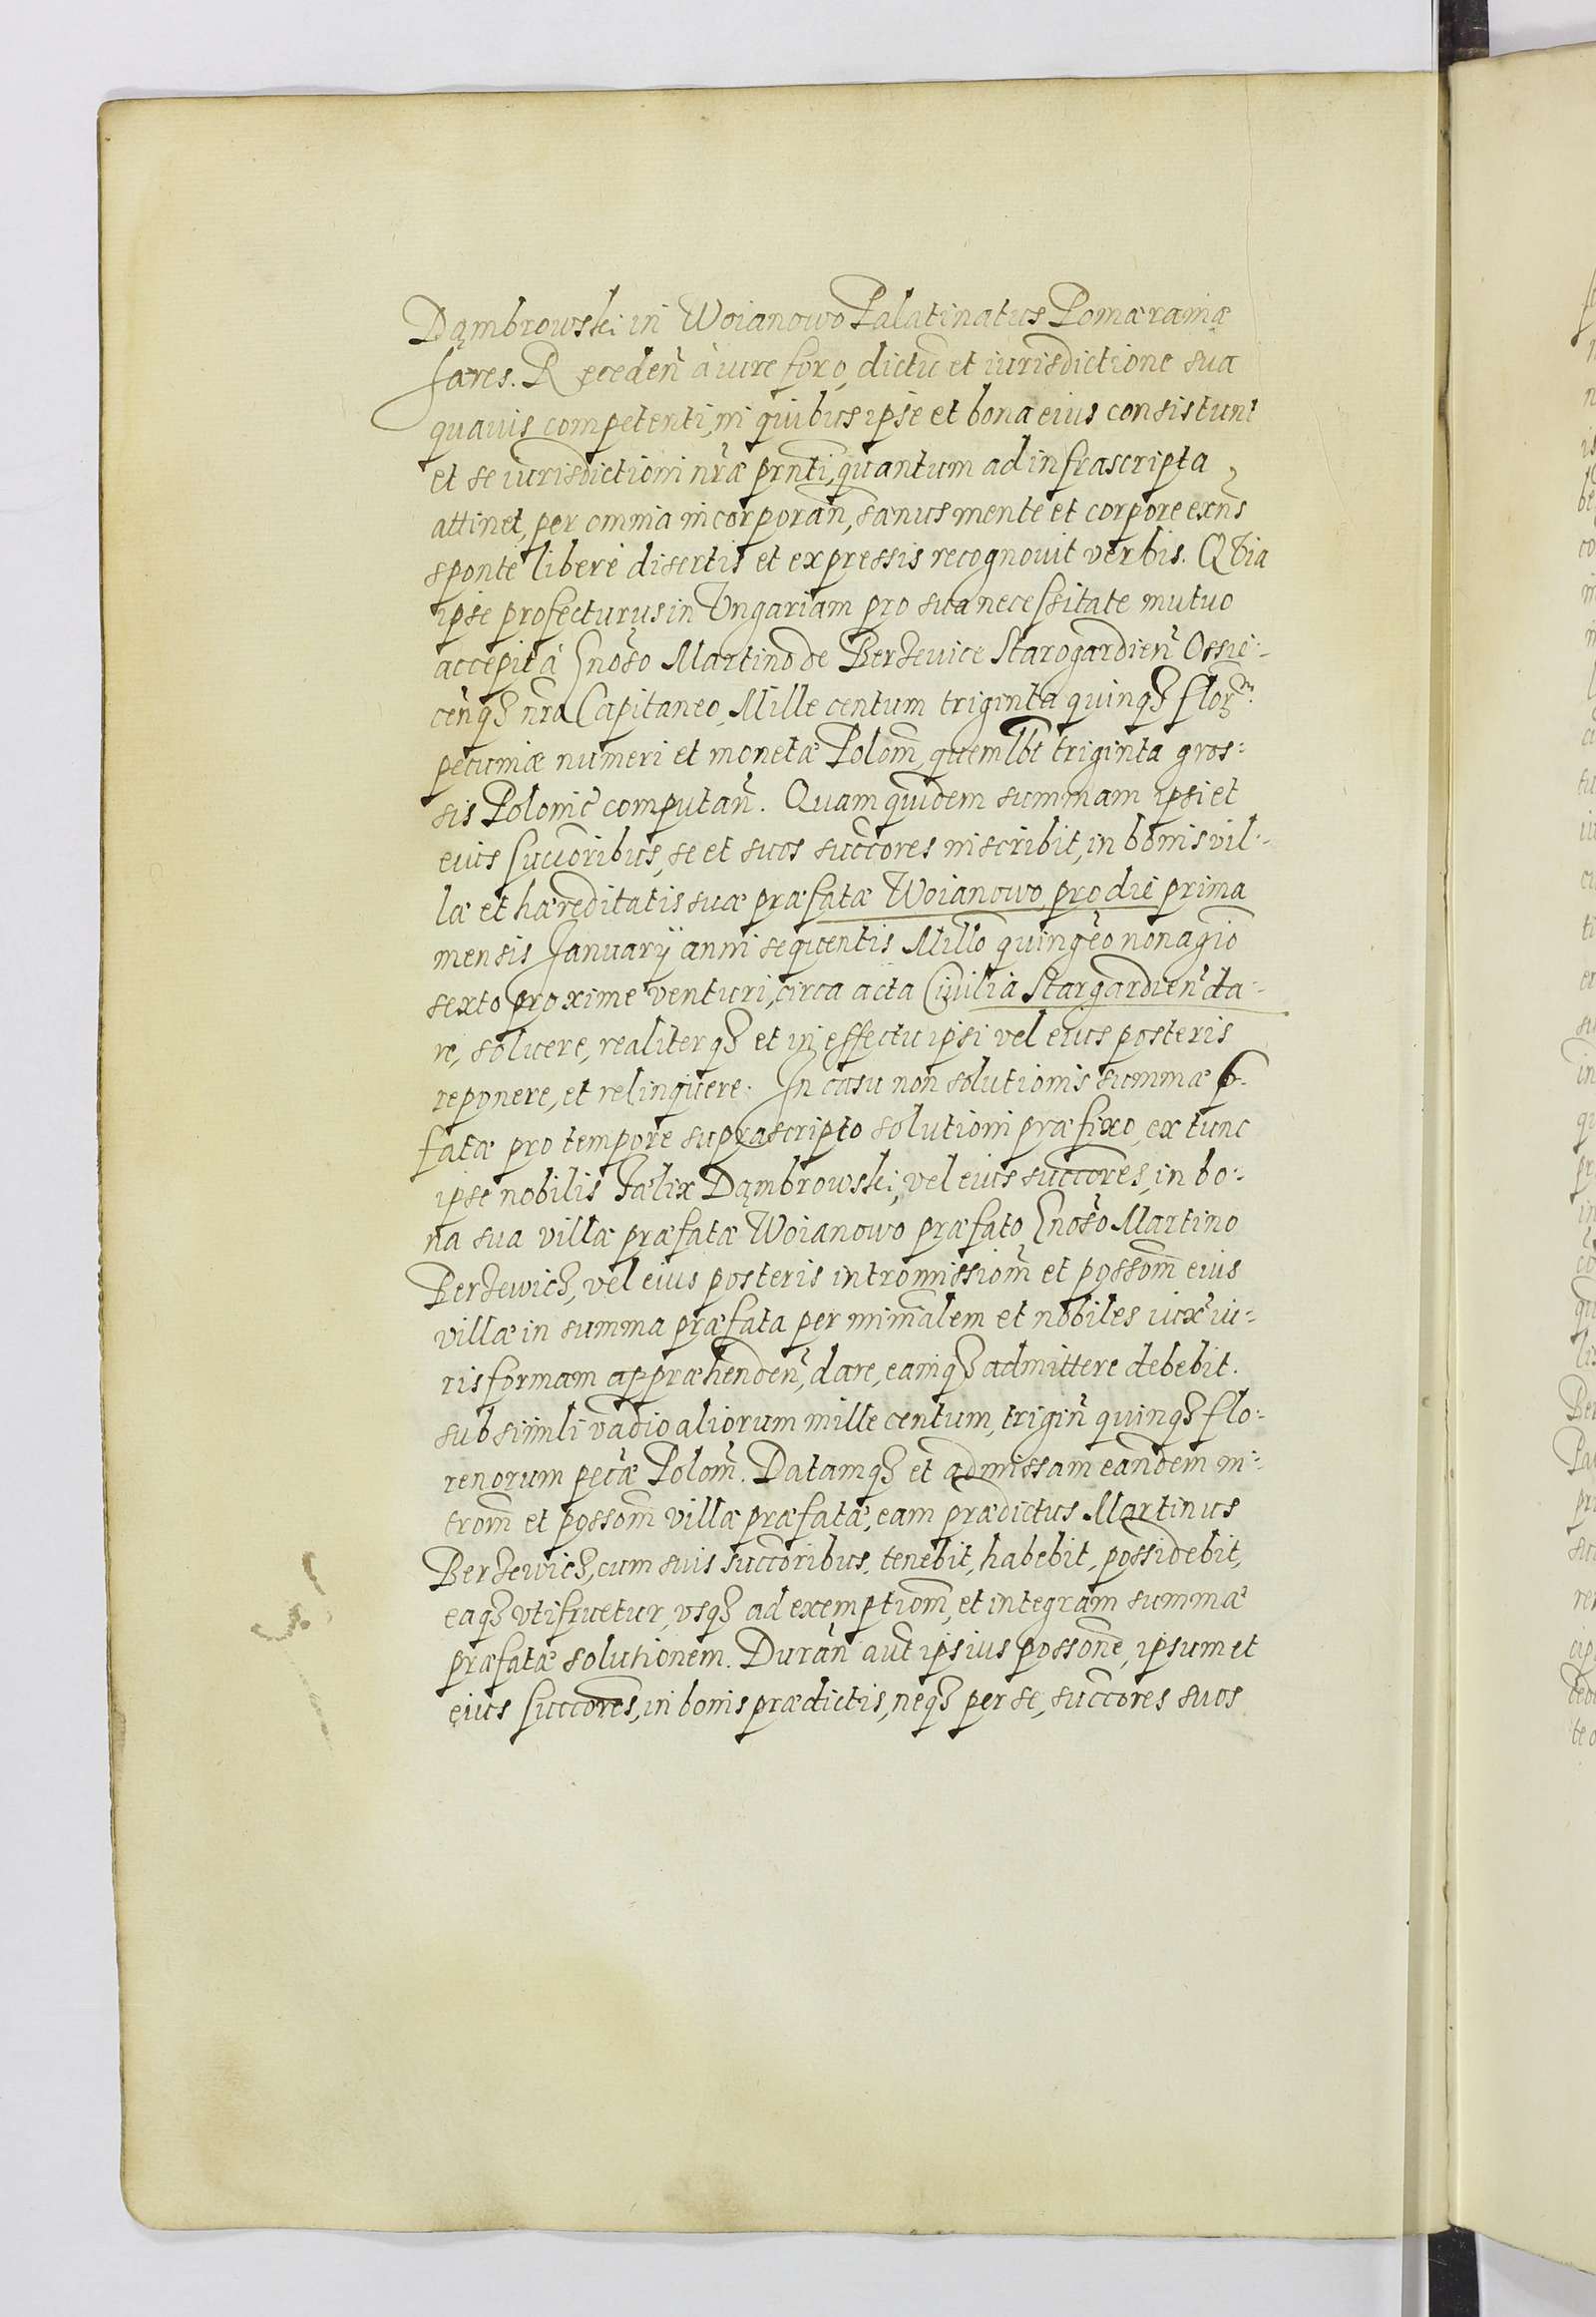 Dąmbrowski in Woianowo Palatinatus Pomæraniæ
hæres. Receden̄ à iure foro, dictu et iurisdictione sua
quauis competenti, in quibus ipse et bona eius consistunt
et se iurisdictioni nr̄æ prn̄ti, quantum ad infrascripta
attinet, per omnia incorporan̄, sanus mente et corpore exn̄s
sponte libere disertis et expressis recognouit verbis. Quia
ipse profecturus in Vngariam pro sua necessitate mutuo
accepit à Gnōso Martino de Berzeuice Starogardien̄ Ossie:
cēnqꝫ nr̄o Capitaneo, Mille centum triginta quinqꝫ flor
pecuniæ numeri et monetæ Polon̄, quemlb̄t triginta gros:
sis Polonic̄ computan̄. Quam quidem summam ipsi et
eius succoribus, se et suos succores inscribit, in bonis vil:
læ et hæreditatis suæ præfatæ Woianowo, pro die prima
mensis Januarij anni sequentis Millō quingēo nonagīo
sexto proxime venturi, circa acta Ciuilia Stargardien̄ da:
re, soluere, realiterqꝫ et in effectu ipsi vel eius posteris
reponere, et relinquere. In casu non solutionis summæ p̄:
fatæ pro tempore suprascripto solutioni præfixo, ex tunc
ipse nobilis Fælix Dąmbrowski, vel eius succores, in bo:
na sua villæ præfatæ Woianowo præfato Gnōso Martino
Berzewicz, vel eius posteris intromissiom̄ et possom̄ eius
villæ in summa præfata per minr̄alem et nobiles iux̄ iu:
ris formam appræhenden̄, dare, eamqꝫ admittere debebit.
sub simili vadio aliorum mille centum, trigin̄ quinqꝫ flo:
renorum pec̄æ Polon̄. Datamqꝫ et admissam eandem in:
trom̄ et possom̄ villæ præfatæ, eam prædictus Martinus
Berzewicz, cum suis succoribus, tenebit, habebit, possidebit,
eaqꝫ vtifruetur, vsqꝫ ad exemptiom̄, et integram summæ
præfatæ solutionem. Duran̄ aut̄ ipsius possone, ipsum et
eius succores, in bonis prædictis, neqꝫ per se, succores suos